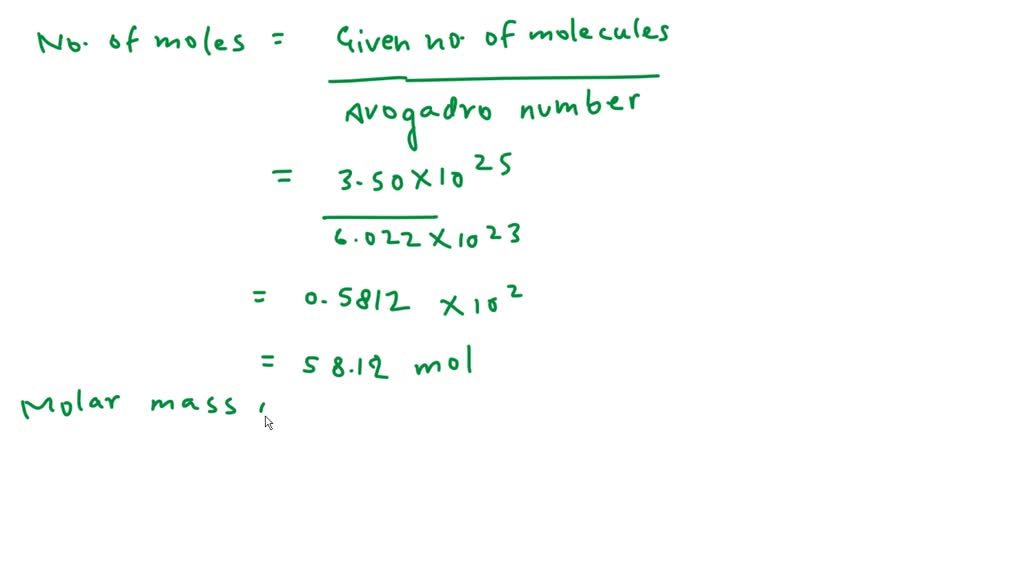 No. of moles = Given no of molecules
Avogadro number
= 3.50 × 10 25
6.022 × 10 23
= 0.5812 × 10 2
= 58.12 mol
Molar mass